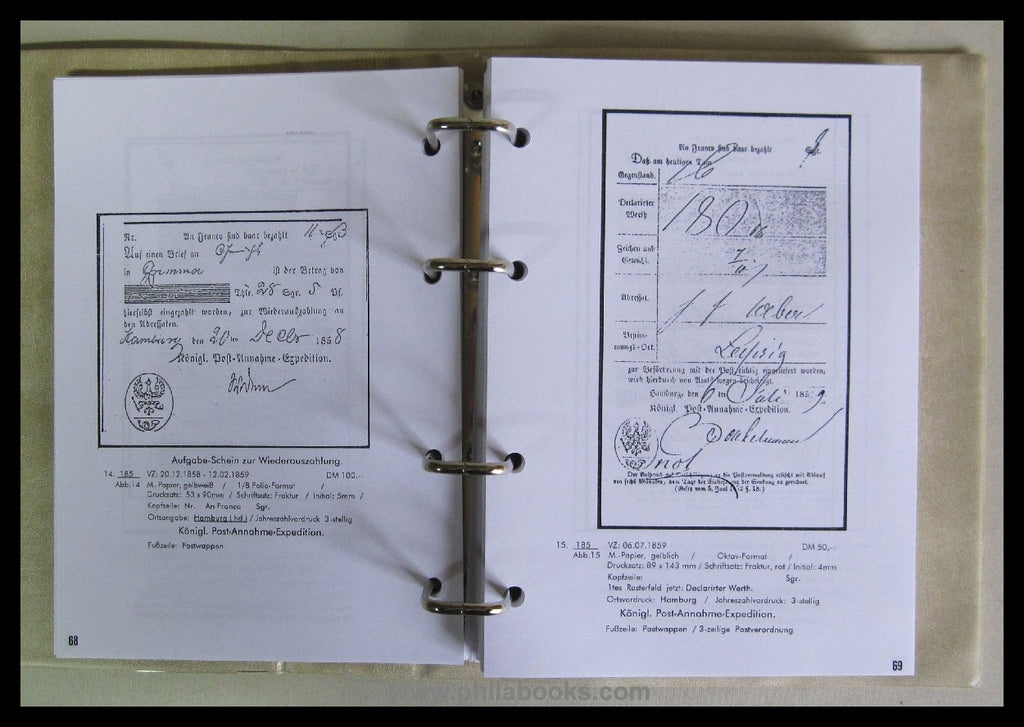 Nr. An Franco sind baar bezahlt Sgr
Auf einen Brief an
in Grimma ist der Betrag von
Thlr. 28 Sgr. 5 Pf.
hierselbst eingezahlt worden, zur Wiederauszahlung an
den Adressaten.
Hamburg den 20 ten Decbr 1858
Königl. Post-Annahme-Expedition.
Aufgabe-Schein zur Wiederauszahlung.
14. 185 VZ: 20.12.1858 - 12.02.1859 DM 100,--
Abb.14 M.-Papier, gelbweiß / 1/8 Folio-Format /
Drucksatz: 53 x 90mm / Schriftsatz: Fraktur / Initial: 5mm /
Kopfzeile: Nr. An Franco Sgr.
Ortsangabe: Hamburg (hd.) / Jahreszahlvordruck 3-stellig
Königl. Post-Annahme-Expedition.
Fußzeile: Postwappen
68
An Franco sind baar bezahlt Sgr.
Daß am heutigen Tage
Gegenstand.
Declarirter
Werth 180
Zeichen und
Gewicht.
Adressat. Weber
Bestim-
mungs-Ort. Leipzig
zur Beförderung mit der Post richtig eingeliefert worden,
wird hierdurch von Amts wegen bescheinigt.
Hamburg, den 6 ten Juli 1859.
Königl. Post-Annahme-Expedition.
Der Anspruch auf Entschädigung an die Postverwaltung erlischt mit Ablauf
von sechs Monaten, vom Tage der Einlieferung der Sendung an gerechnet.
15. 185 VZ: 06.07.1859 DM 50,--
Abb.15 M.-Papier, gelblich / Oktav-Format /
Drucksatz: 89 x 143 mm / Schriftsatz: Fraktur, rot / Initial: 4mm
Kopfzeile: Sgr.
1tes Rasterfeld jetzt: Declarirter Werth.
Ortsvordruck: Hamburg / Jahreszahlvordruck: 3-stellig
Königl. Post-Annahme-Expedition.
Fußzeile: Postwappen / 3-zeilige Postverordnung
69
www.philabooks.com